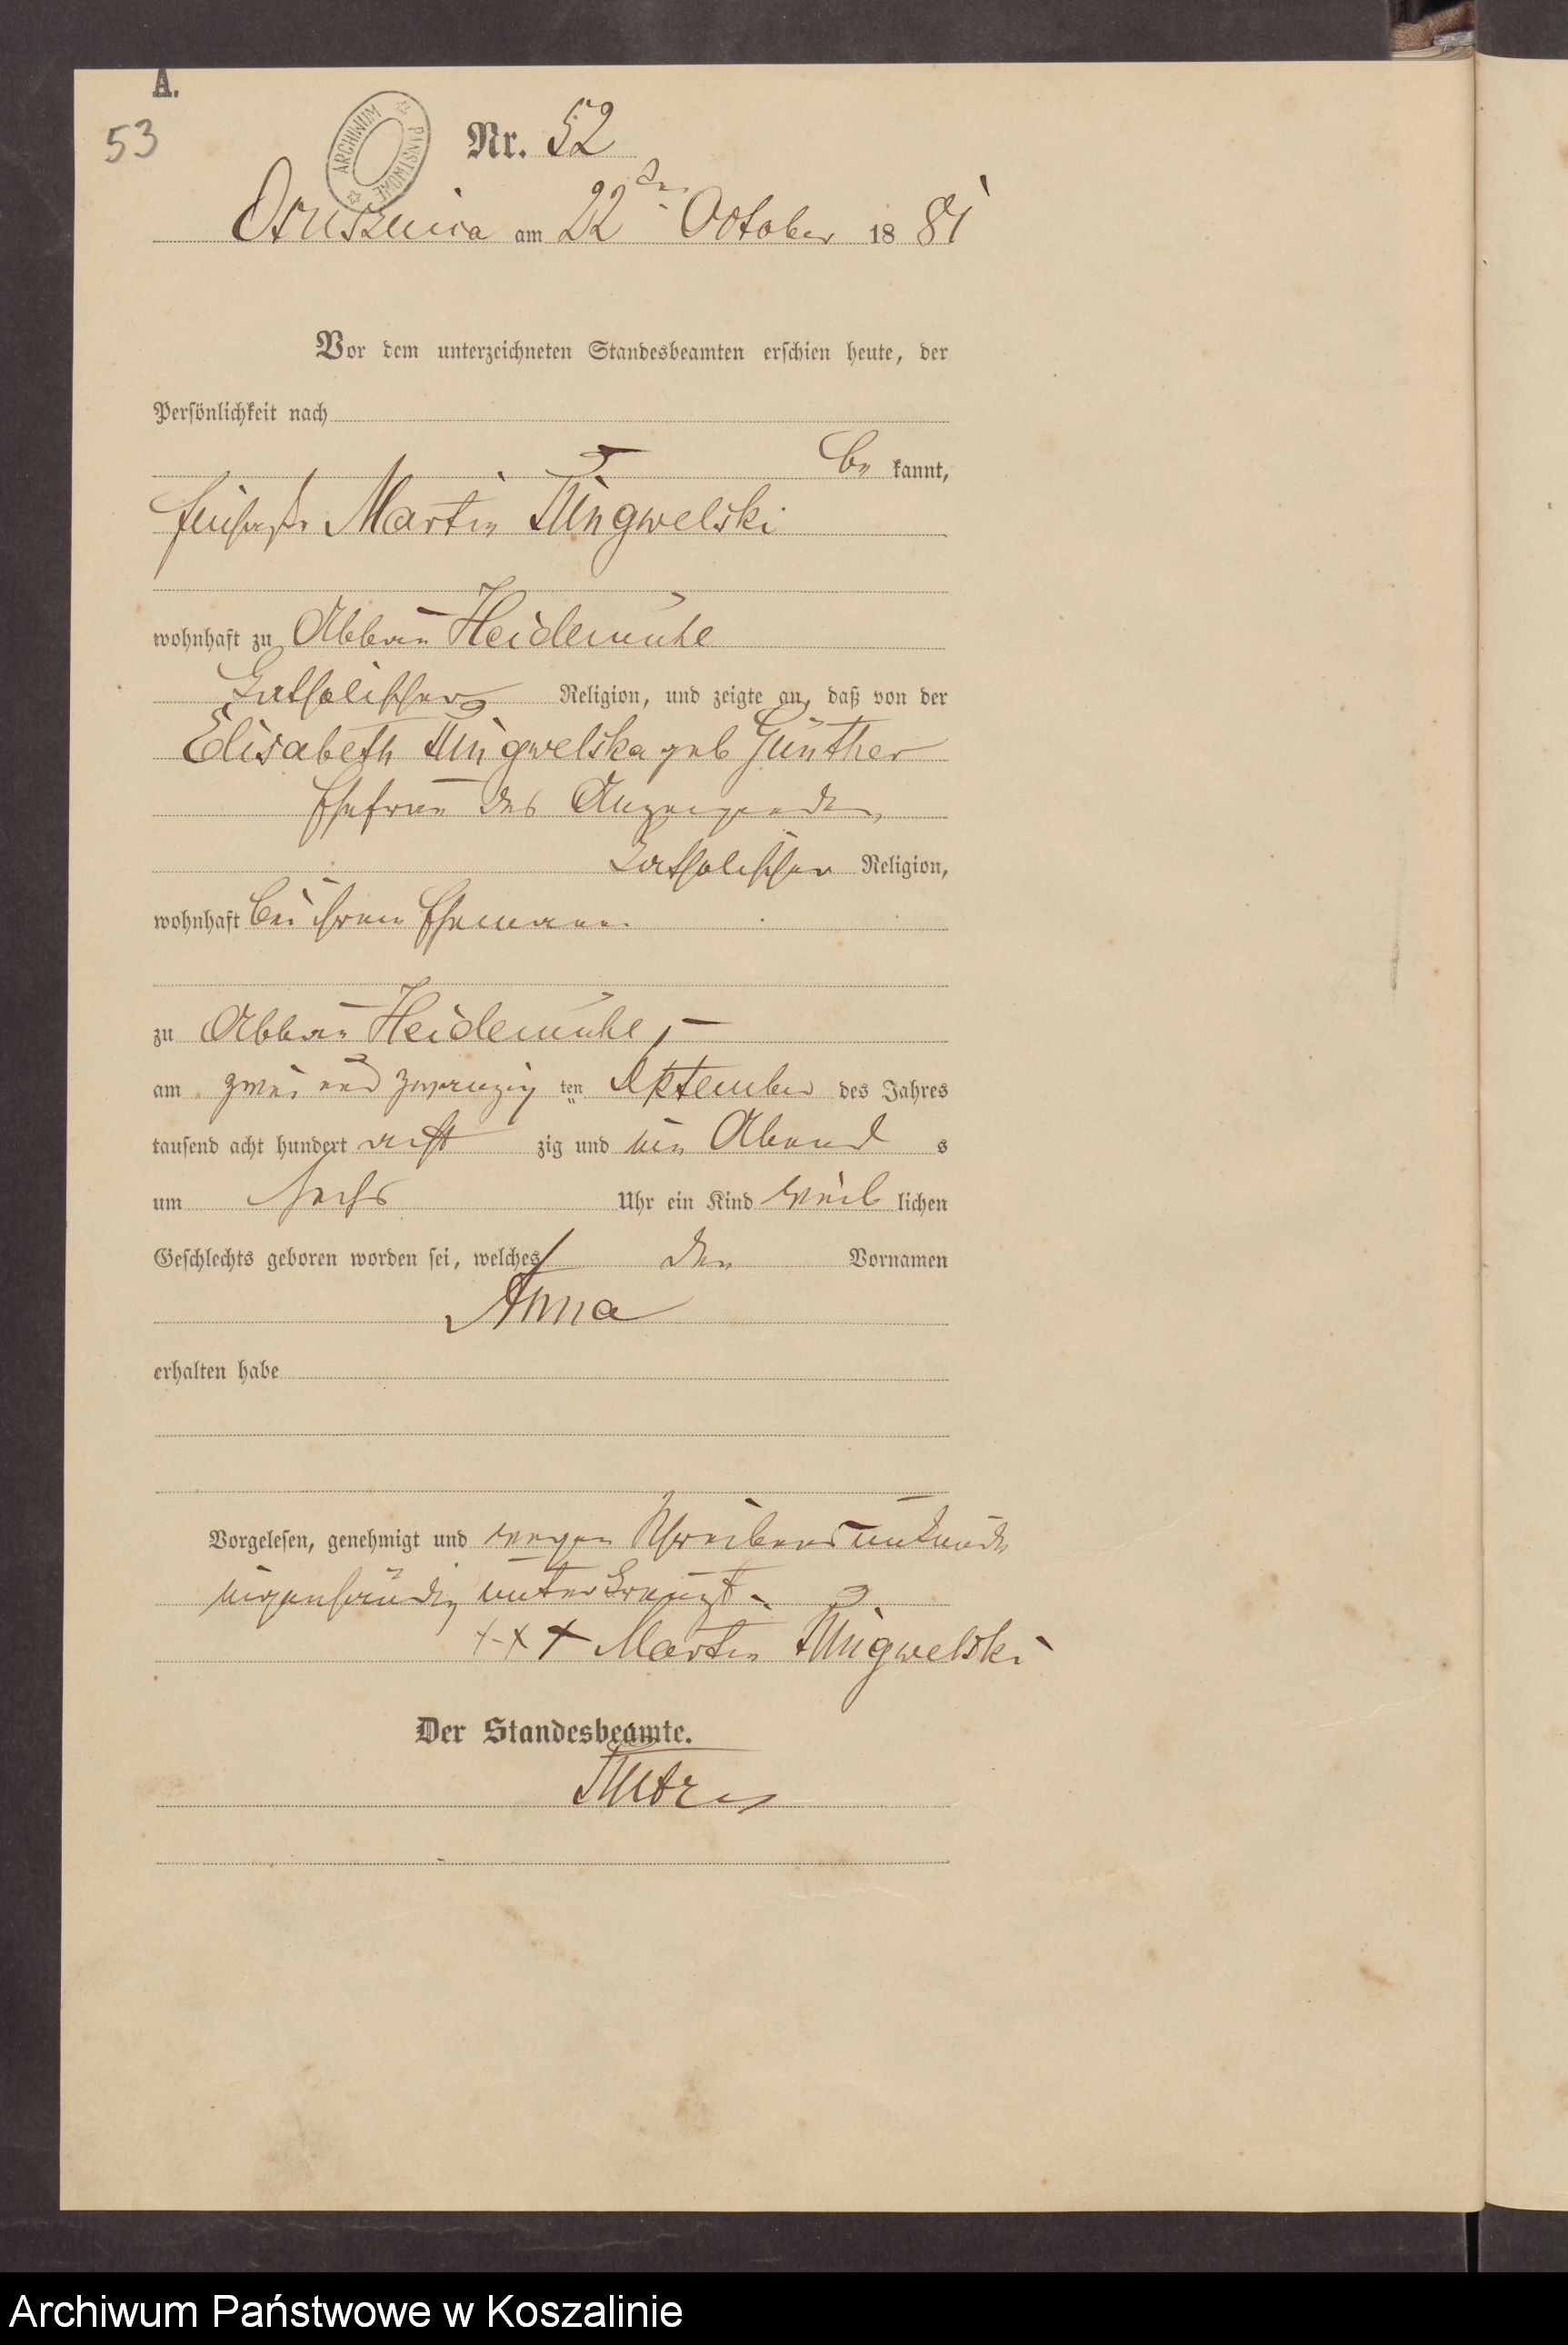 A.
53
ARCHIWUM PAŃSTWOWE
Nr. 52
Osusznica am 22ten October 1881
Vor dem unterzeichneten Standesbeamten erschien heute, der
Persönlichkeit nach
be kannt,
Martin
wohnhaft zu Abbau Heidemühle
katholischer Religion, und zeigte an, daß von der
Elisabeth geb Günther
Ehefrau des Anzeigenden
katholischer Religion,
wohnhaft bei ihrem Ehemann
zu Abbau Heidemühle,
am zwei und zwanzig ten September des Jahres
tausend acht hundert acht zig und ein Abend s
um sechs Uhr ein Kind weib lichen
Geschlechts geboren worden sei, welches den Vornamen
Anna
erhalten habe
Vorgelesen, genehmigt und wegen Schreibensunkunde
eigenhändig unterkreuzt.
+++ Martin
Der Standesbeamte.
Archiwum Państwowe w Koszalinie